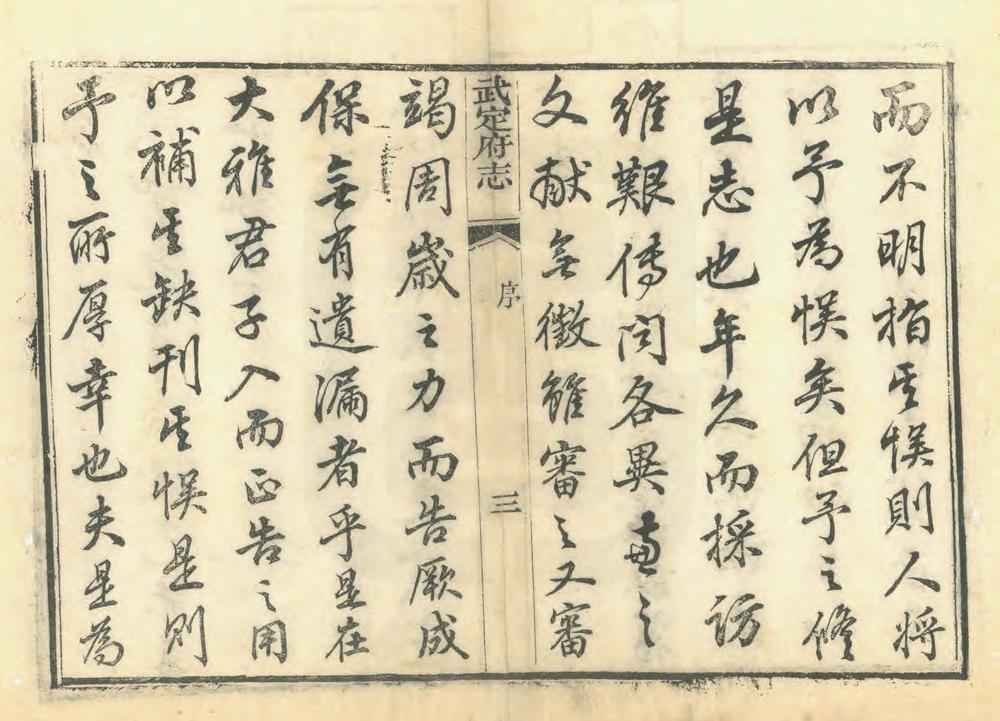 而不明指其悞則人将
以予為悞矣但予之修
是志也年久而採访
維艱傳闻各異兼之
文献無徵雖審之又審
武定府志
序
三
竭周歲之力而告厥成
保無有遺漏者乎是在
大雅君子入而正告之用
以補其缺刊其悞是则
予之所厚幸也夫是為